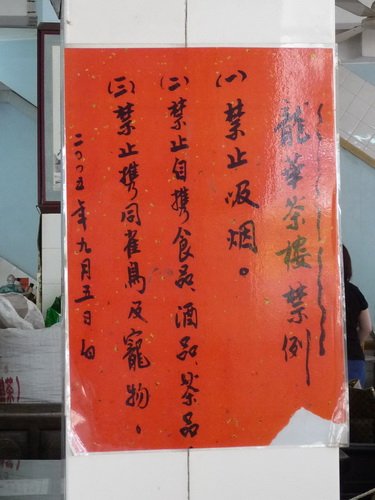 龍華茶樓禁例
(一)禁止吸烟。
(二)禁止自携食品、酒品、茶品
(三)禁止携同雀鳥及寵物。
二00五年九月五日